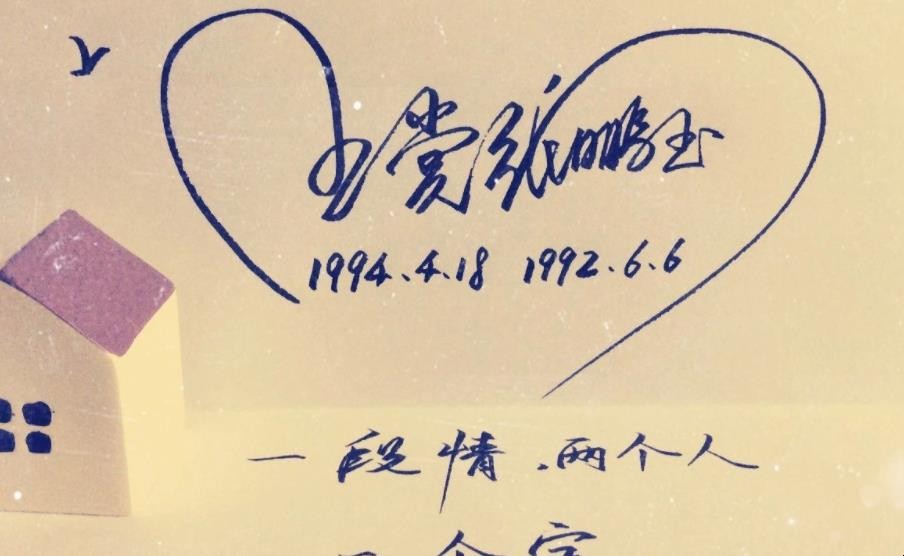 王赏张鹏玉
1994.4.18 1992.6.6
一段情.两个人
个字